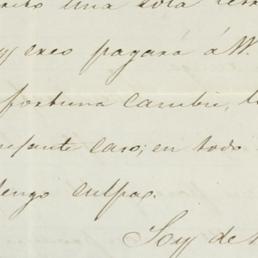 una sola
y creo pagará á W.
fortuna cambie,
caso; en todo
tengo culpa.
Soy de